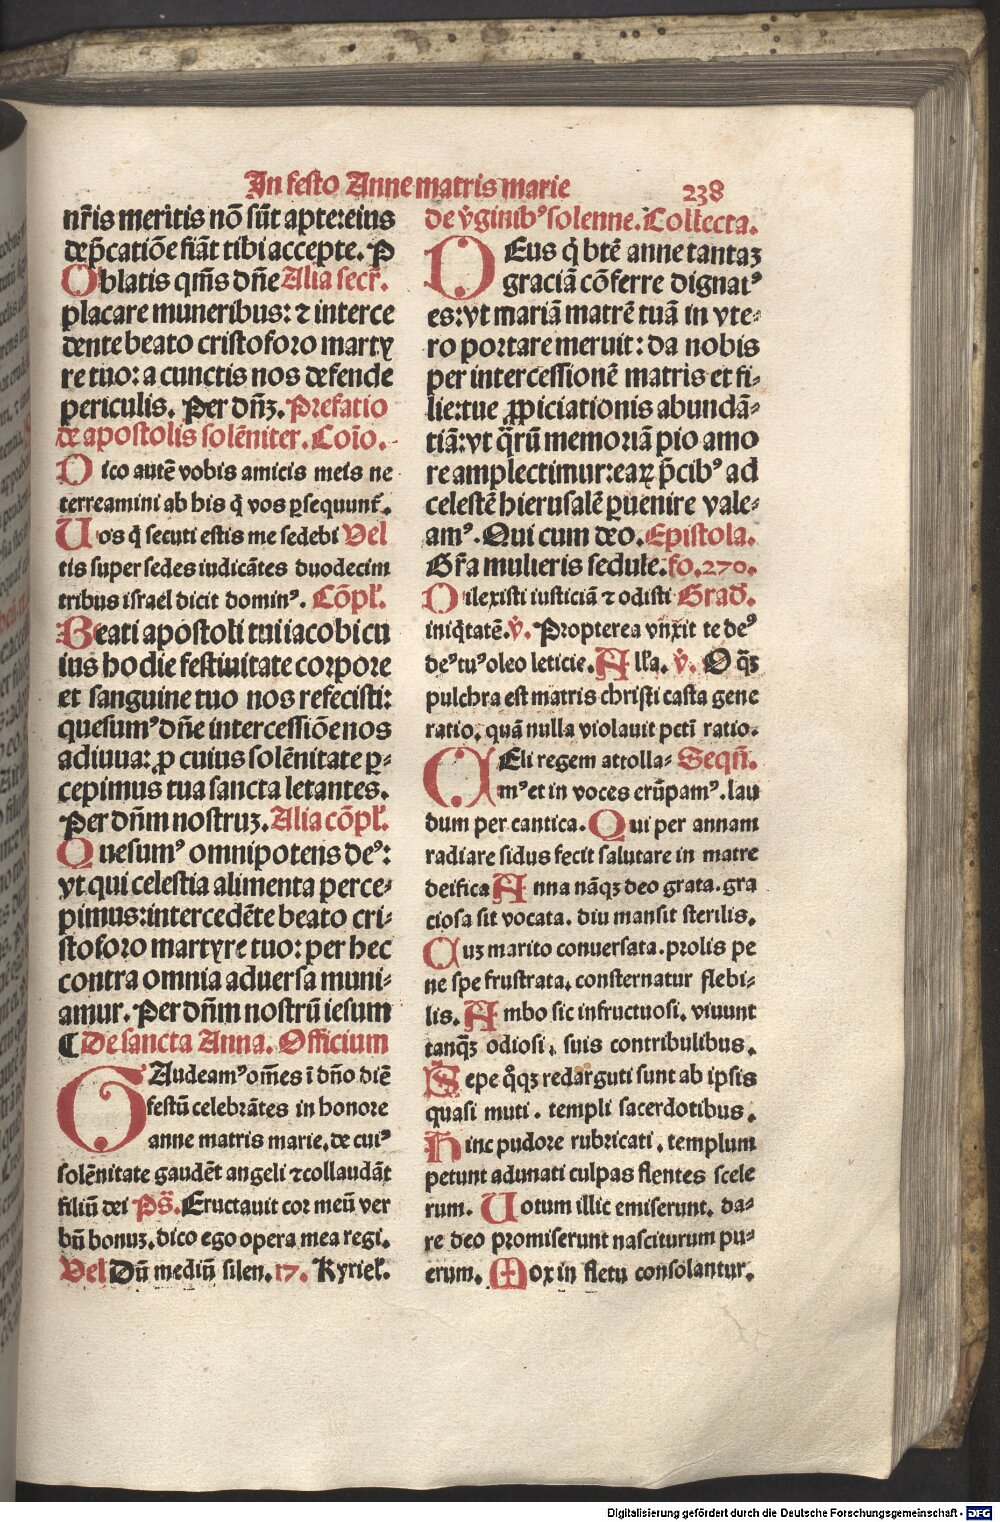 In festo Anne matris marie 238
nr̃is meritis nõ sũt apte:eius
dep̃catiõe fiãt tibi accepte. P
Oblatis qm̃s dñe Alia secr̃.
placare muneribus: ⁊ interce
dente beato cristoforo marty
re tuo: a cunctis nos defende
periculis. Per dñꝫ. Prefatio
de apostolis solẽniter. Coĩo.
Dico autẽ vobis amicis meis ne
terreamini ab his q̃ vos ꝑsequunt̃.
Uos q̃ secuti estis me sedebi Vel
tis super sedes iudicãtes duodecim
tribus israel dicit dominꝰ. Cõpl̃.
Beati apostoli tui iacobi cu
ius hodie festiuitate corpore
et sanguine tuo nos refecisti:
quesumꝰ dñe intercessiõe nos
adiuua: ꝓ cuius solẽnitate ꝑ-
cepimus tua sancta letantes.
Per dñm nostruꝫ. Alia cõpl̃.
Quesumꝰ omnipotens deꝰ:
vt qui celestia alimenta perce-
pimus:intercedẽte beato cri-
stoforo martyre tuo: per hec
contra omnia aduersa muni-
amur. Per dñm nostrũ iesum
¶ De sancta Anna. Officium
GAudeamꝰ om̃es ĩ dño diẽ
festũ celebrãtes in honore
anne matris marie. de cuiꝰ
solẽnitate gaudẽt angeli ⁊collaudãt
filiũ dei Ps̃. Eructauit cor meũ ver
bũ bonuꝫ. dico ego opera mea regi.
Vel Dũ mediũ silen. 17. Kyriel̃.
de v̾ginibꝰ solenne. Collecta.
DEus q̃ btẽ anne tantaꝫ
graciã cõferre dignatꝰ
es:vt mariã matrẽ tuã in vte-
ro portare meruit: da nobis
per intercessionẽ matris et fi-
lie:tue ꝓpiciationis abundã-
tiã:vt q̃rũ memoriã pio amo
re amplectimur:eaꝝ p̃cibꝰ ad
celestẽ hierusalẽ ꝑuenire vale-
amꝰ. Qui cum deo. Epistola.
Gr̃a mulieris sedule. fo. 270.
Dilexisti iusticiã ⁊ odisti Grad̃.
iniq̃tatẽ. v̾. Propterea vnxit te deꝰ
deꝰ tuꝰ oleo leticie. All̃a. v̾. O q̃ꝫ
pulchra est matris christi casta gene
ratio. quã nulla violauit pctĩ ratio.
CEli regem attolla- Sequñ.
mꝰ et in voces erũpamꝰ. lau
dum per cantica. Qui per annam
radiare sidus fecit salutare in matre
deifica Anna nãqꝫ deo grata. gra
ciosa sit vocata. diu mansit sterilis.
Cuꝫ marito conuersata. prolis pe
ne spe frustrata. consternatur flebi-
lis. Ambo sic infructuosi. viuunt
tanq̃ꝫ odiosi. suis contribulibus.
Sepe q̊qꝫ redarguti sunt ab ipsis
quasi muti. templi sacerdotibus.
Hinc pudore rubricati. templum
petunt adunati culpas flentes scele
rum. Uotum illic emiserunt. da-
re deo promiserunt nasciturum pu-
erum. Mox in fletu consolantur.
Digitalisierung gefördert durch die Deutsche Forschungsgemeinschaft - DFG